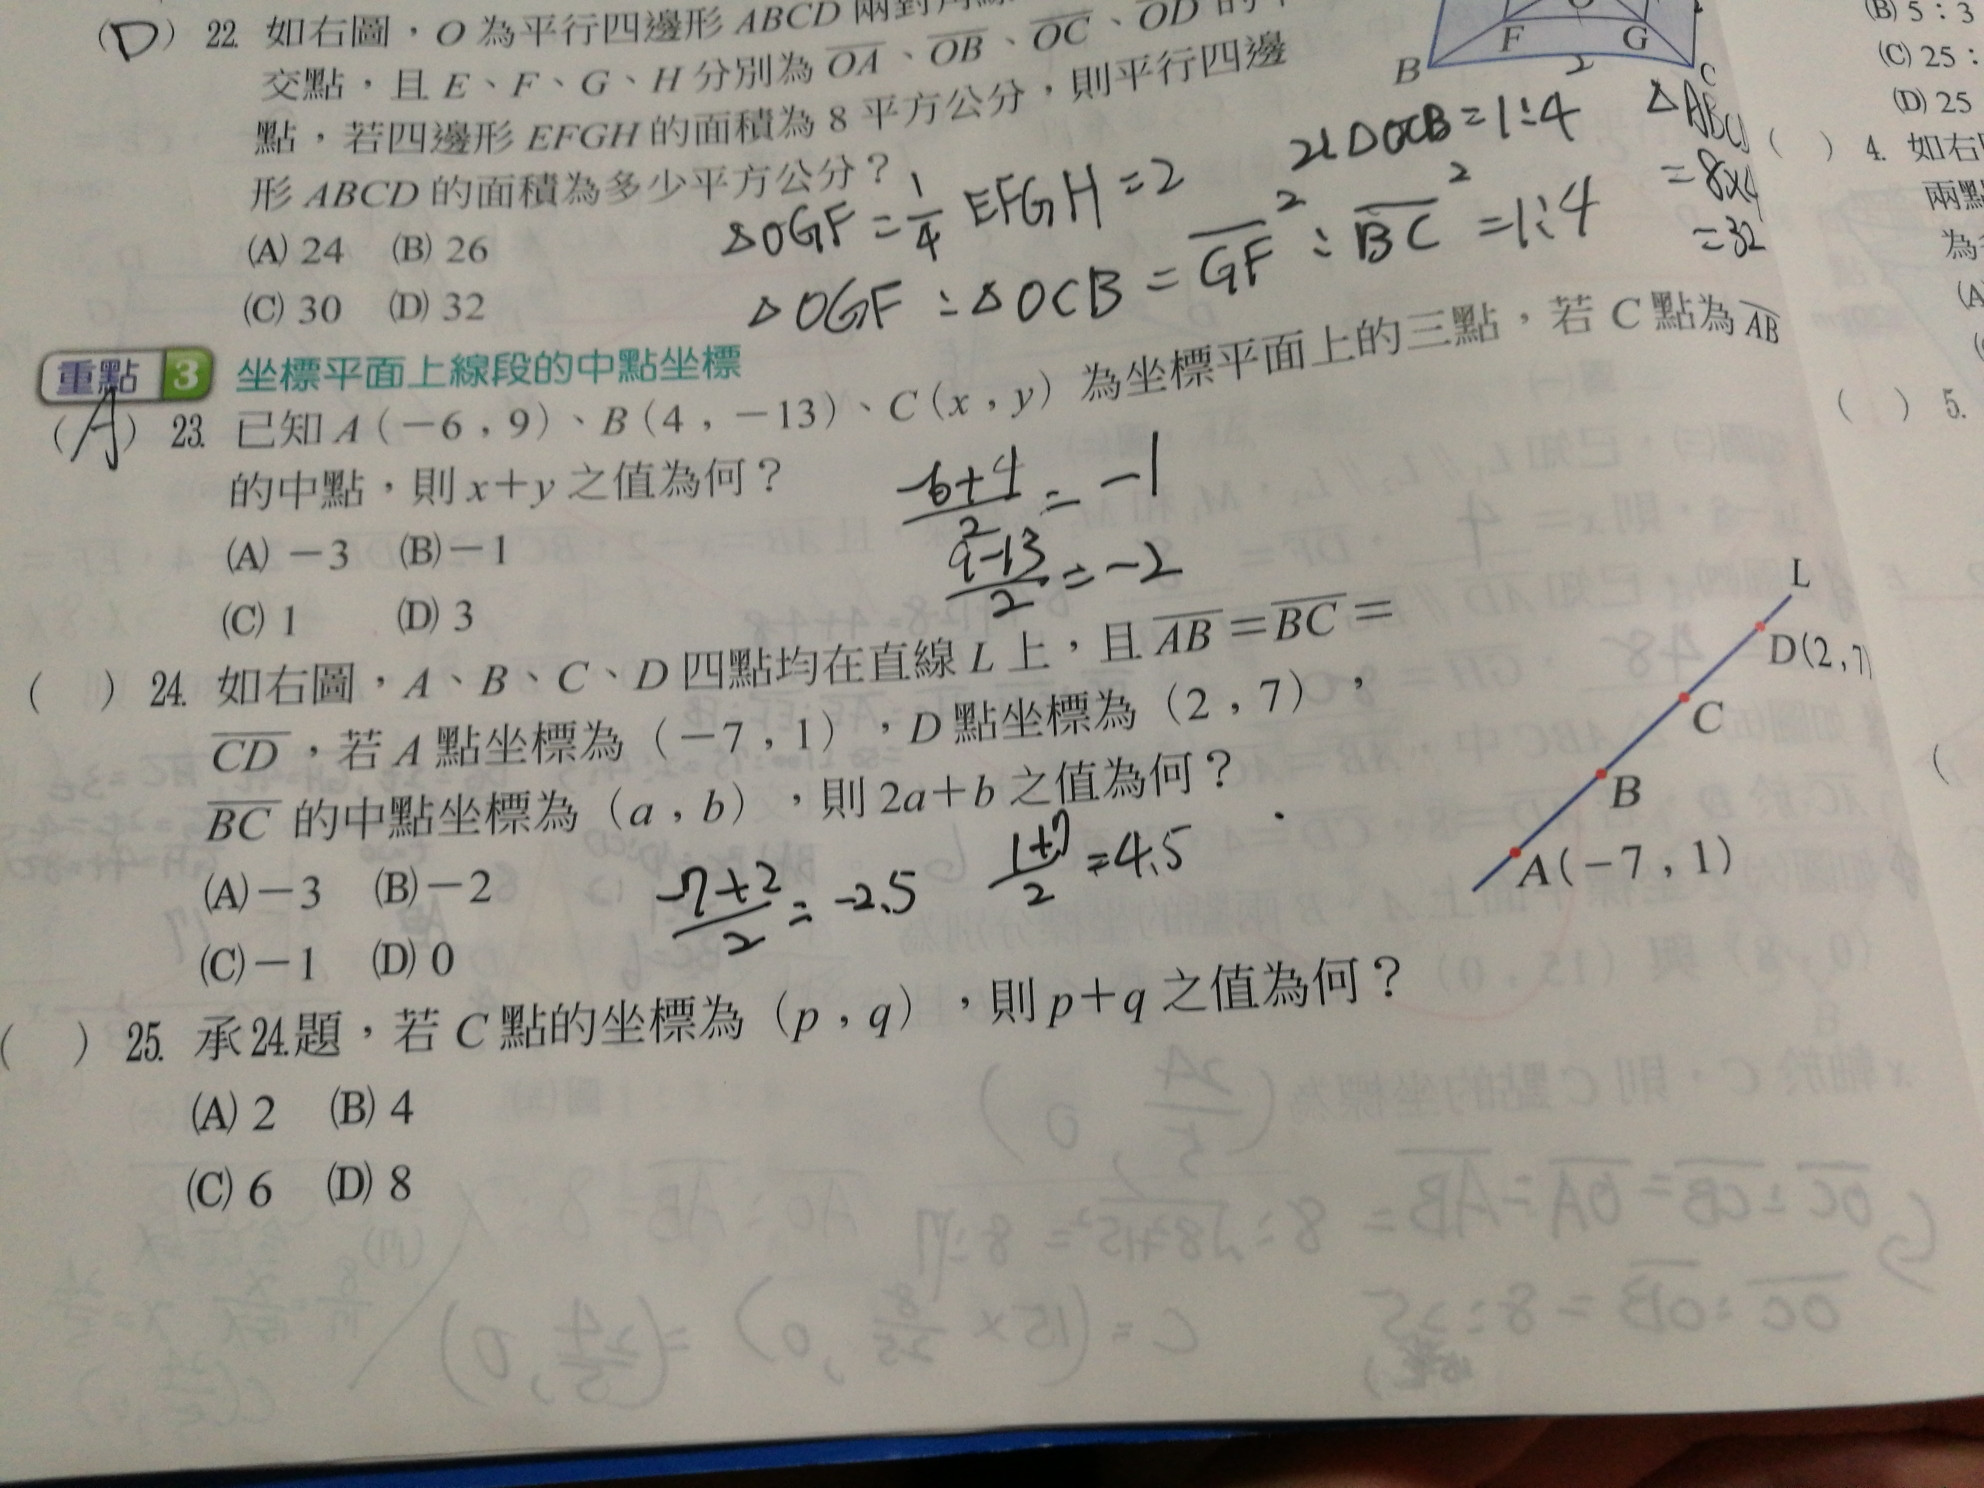 (D) 22. 如右圖，O 為平行四邊形 ABCD 兩對角
交點，且 E、F、G、H 分別為 OA、OB、OC、OD 的
點，若四邊形 EFGH 的面積為 8 平方公分，則平行四邊
形 ABCD 的面積為多少平方公分？
(A) 24 (B) 26
(C) 30 (D) 32
F G
B 2 C
△OGF = 1/4 EFGH = 2
△OGF : △OCB = GF² : BC² = 1:4
△OCB = 1:4
△ABCD
= 8×4
= 32
重點 3 坐標平面上線段的中點坐標
(A) 23. 已知 A（－6，9）、B（4，－13）、C（x，y）為坐標平面上的三點，若 C 點為 AB
的中點，則 x＋y 之值為何？
(A) －3 (B) －1
(C) 1 (D) 3
-6+4/2 = -1
9-13/2 = -2
( ) 24. 如右圖，A、B、C、D 四點均在直線 L 上，且 AB＝BC＝
CD，若 A 點坐標為（－7，1），D 點坐標為（2，7），
BC 的中點坐標為（a，b），則 2a＋b 之值為何？
(A) －3 (B) －2
(C) －1 (D) 0
-7+2/2 = -2.5
1+7/2 = 4.5
L
D(2,7)
C
B
A(－7，1)
( ) 25. 承24.題，若 C 點的坐標為（p，q），則 p＋q 之值為何？
(A) 2 (B) 4
(C) 6 (D) 8
(B) 5：3
(C) 25：
(D) 25
( ) 4. 如右
兩點
為
(A
( ) 5.